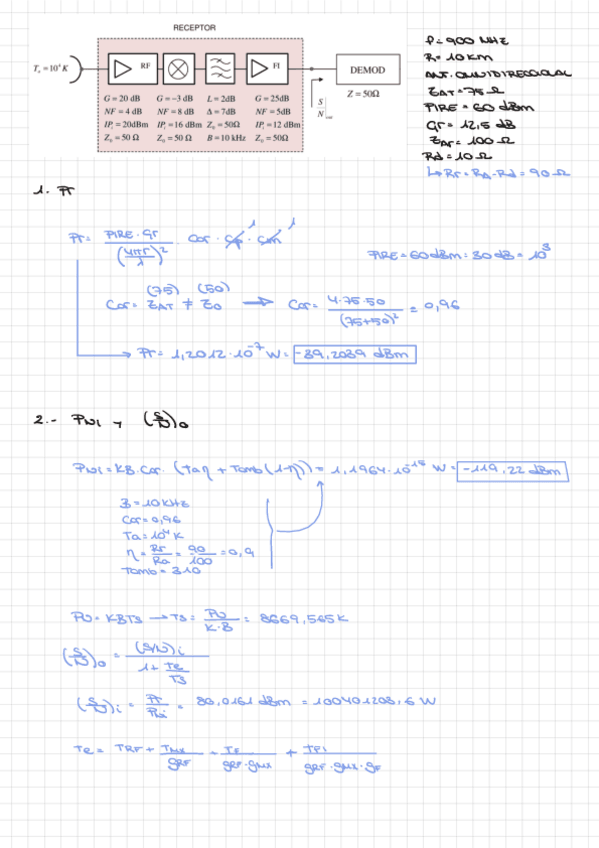 RECEPTOR
Ta = 10⁴ K
RF
FI
DEMOD
Z = 50Ω
S/N out
G = 20 dB G = −3 dB L = 2dB G = 25dB
NF = 4 dB NF = 8 dB Δ = 7dB NF = 5dB
IPi = 20dBm IPi = 16 dBm Z0 = 50Ω IPi = 12 dBm
Z0 = 50 Ω Z0 = 50 Ω B = 10 kHz Z0 = 50Ω
f = 900 MHz
R = 10 km
ANT. OMNIDIRECCIONAL
ZAT = 75 Ω
PIRE = 60 dBm
Gr = 12,5 dB
ZAr = 100 Ω
Rd = 10 Ω
↳ Rr = RA - Rd = 90 Ω
1. Pr
Pr = PIRE · Gr / (4πr/λ)² · Car · Cp¹ · Cm¹
PIRE = 60 dBm = 30 dB = 10³
(75) (50)
Car = ZAT ≠ Z0 → Car = 4·75·50 / (75+50)² = 0,96
→ Pr = 1,2012·10⁻⁷ W = -39,2039 dBm
2.- PNi y (S/N)o
PNi = KB·Car·(Taη + Tamb(1-η)) = 1,1964·10⁻¹⁵ W = -119,22 dBm
B = 10 KHz
Car = 0,96
Ta = 10⁴ K
η = Rr/Ra = 90/100 = 0,9
Tamb = 310
PN = KBTs → Ts = PN / K·B = 8669,565 K
(S/N)o = (S/N)i / 1 + Te/Ts
(S/N)i = Pr/PNi = 80,0161 dBm = 100401203,6 W
Te = TRF + TMX/gRF + TF/gRF·gMX + TFI/gRF·gMX·gF